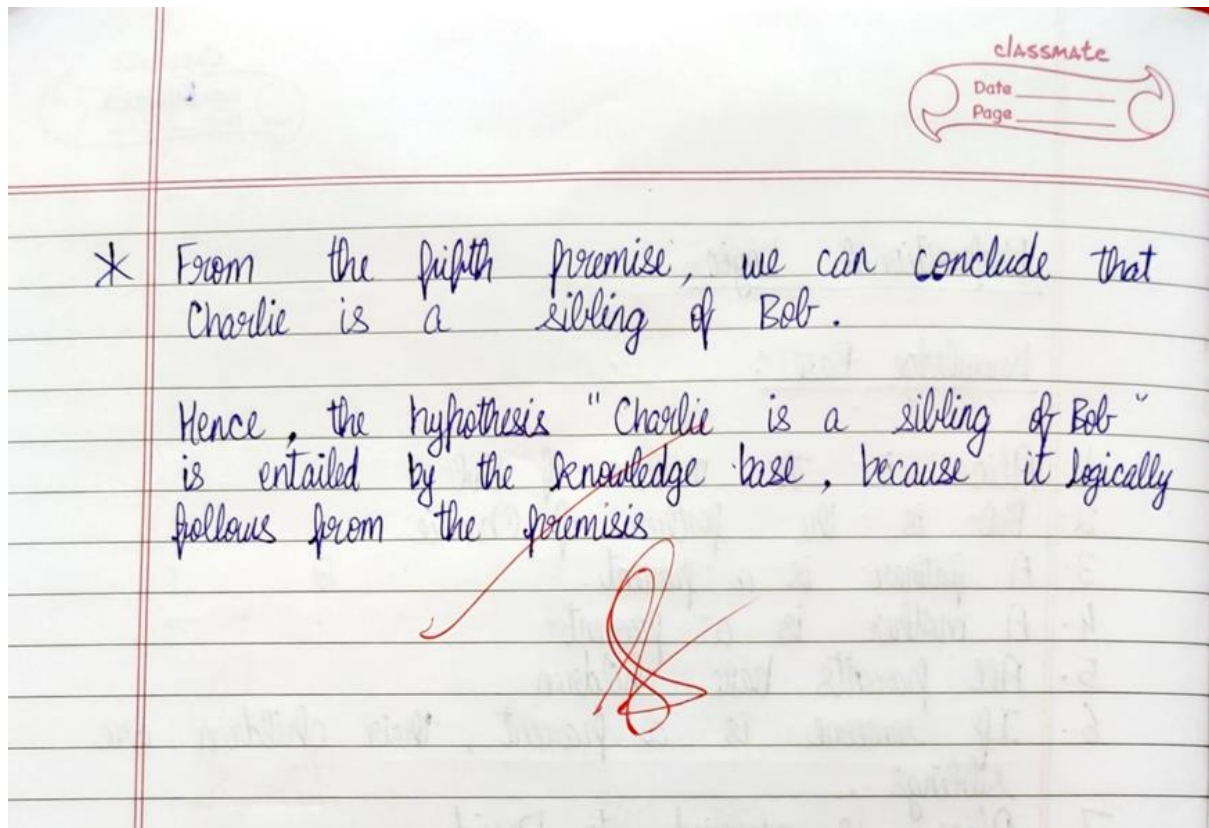 classmate
Date
Page
* From the fifth premise, we can conclude that
Charlie is a sibling of Bob.
Hence, the hypothesis "Charlie is a sibling of Bob"
is entailed by the knowledge base, because it logically
follows from the premisis